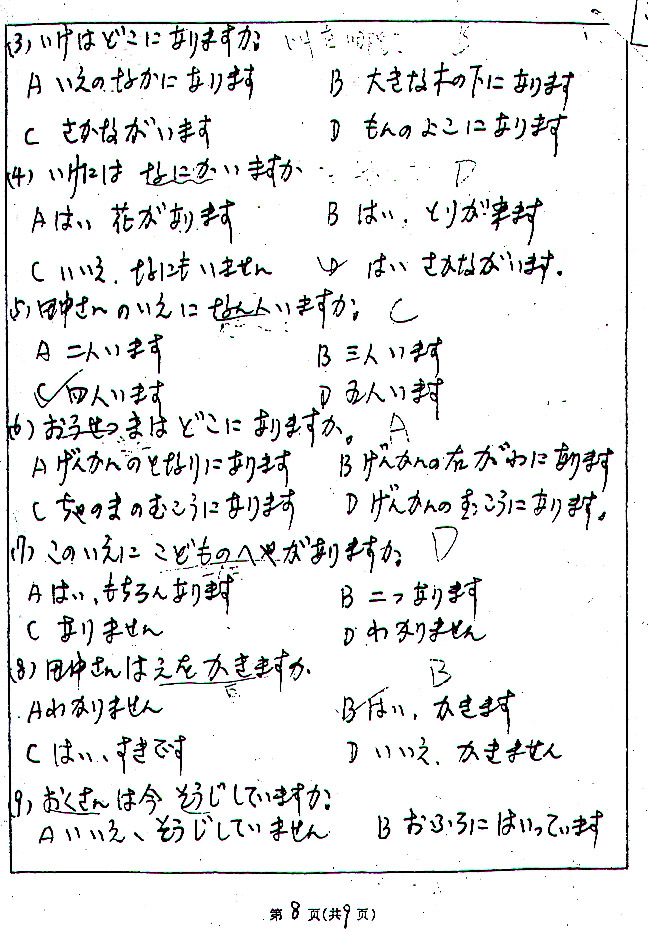 (3) いけはどこにありますか。
A いえのなかにあります B 大きな木の下にあります
C さかながいます D もんのよこにあります
(4) いけには なにかいますか D
A はい 花があります B はい、とりが来ます
C いいえ、なにもいません D はい さかながいます。
(5) 田中さんのいえになん人いますか。 C
A 二人います B 三人います
C 四人います D 五人います
(6) おうせつまはどこにありますか。 A
A げんかんのとなりにあります B げんかんの右がわにあります
C ちゃのまのむこうにあります D げんかんのむこうにあります。
(7) このいえにこどものへやがありますか。 D
A はい、もちろんあります B 二つあります
C ありません D わかりません
(8) 田中さんはえをかきますか B
A わかりません B はい、かきます
C はい、すきです D いいえ、かきません
(9) おくさんは今そうじしていますか。
A いいえ、そうじしていません B おふろにはいっています
第8页(共9页)